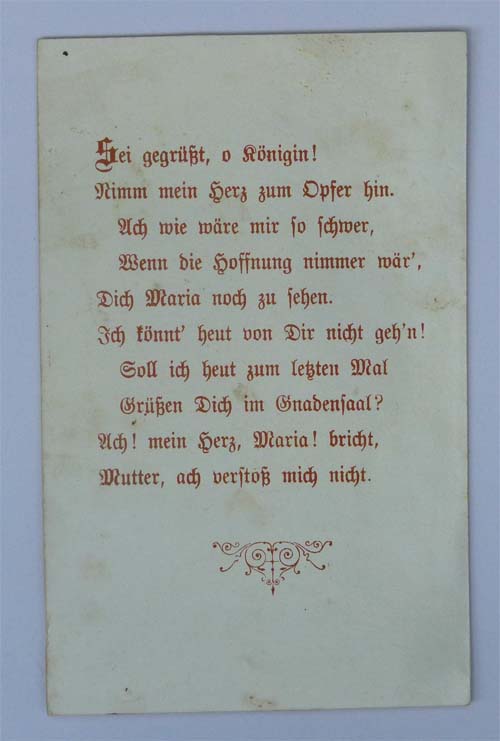 Sei gegrüßt, o Königin!
Nimm mein Herz zum Opfer hin.
Ach wie wäre mir so schwer,
Wenn die Hoffnung nimmer wär',
Dich Maria noch zu sehen.
Ich könnt' heut von Dir nicht geh'n!
Soll ich heut zum letzten Mal
Grüßen Dich im Gnadensaal?
Ach! mein Herz, Maria! bricht,
Mutter, ach verstoß mich nicht.